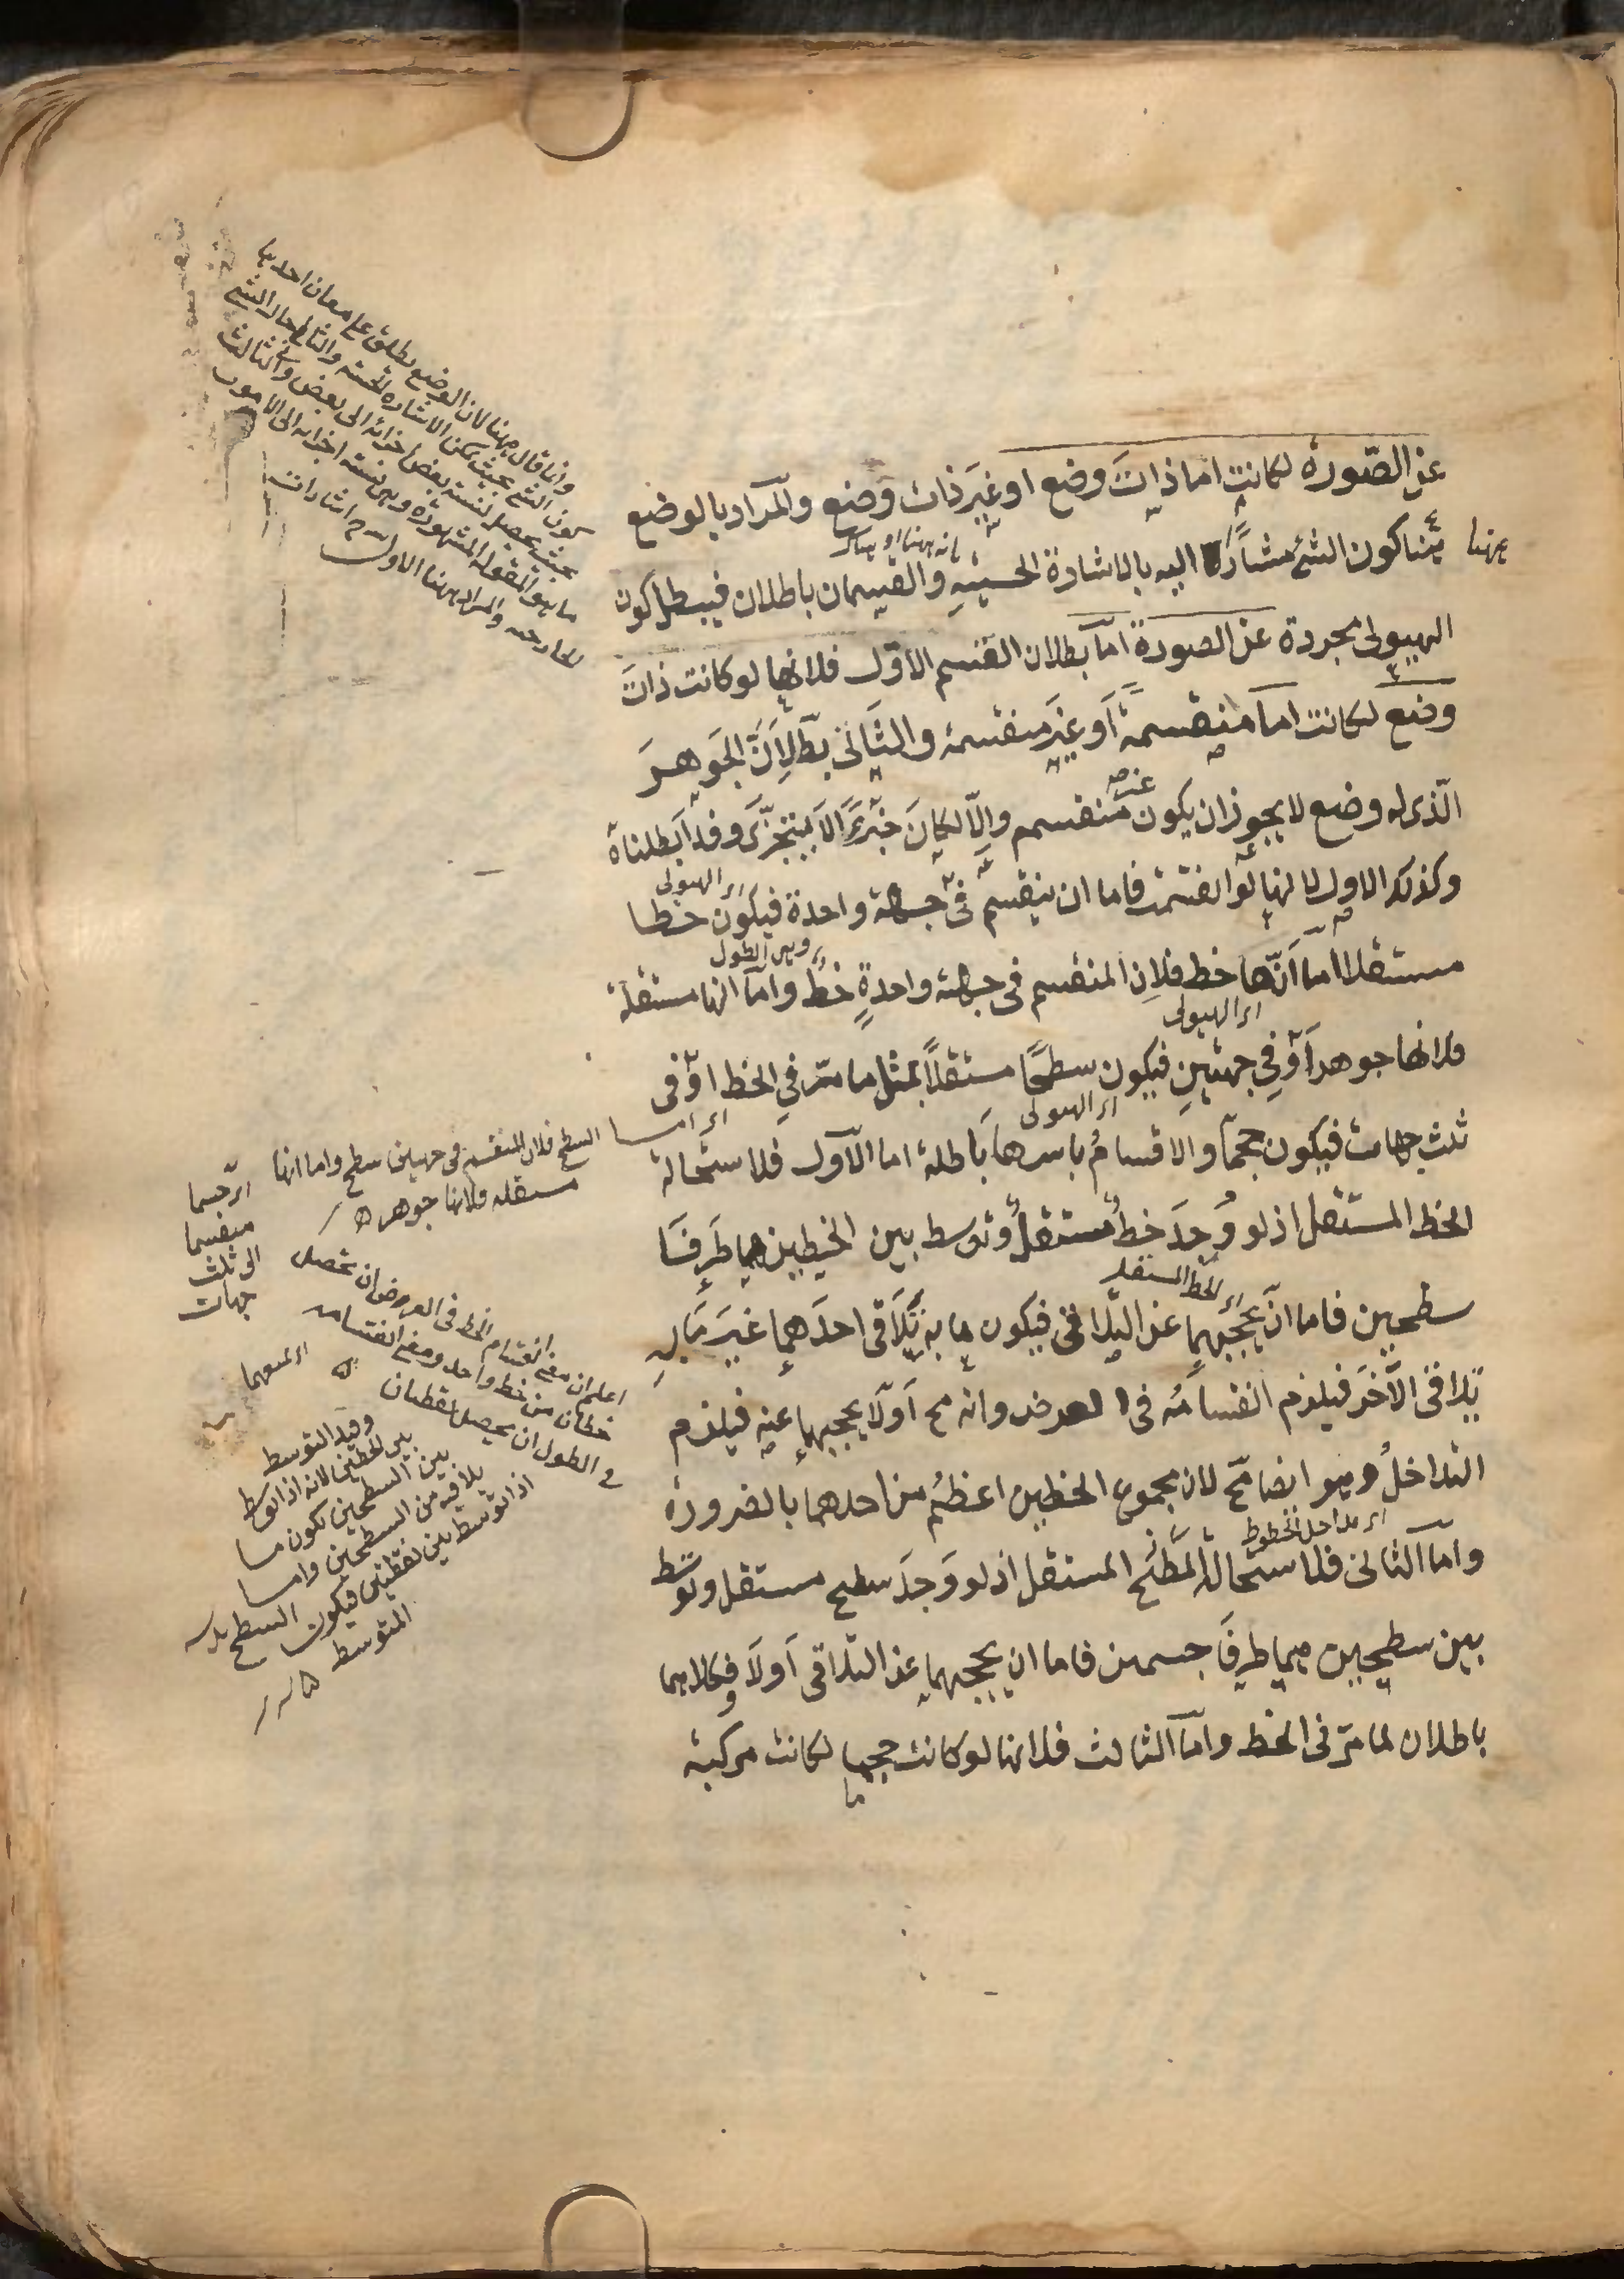 عن الصّورة لكانت اما ذاتَ وضع او غيرَ ذات وضع والمراد بالوضع
ههنا كون الشئ مشارًا اليه بالاشارة الحسّيةِ والقسمان باطلان فيبطل كون
بانه ههنا او هناك
الهيولى مجردة عن الصورة امّا بطلان القسم الاوّل فلانها لو كانت ذاتَ
وضع لكانت اما منقسمةً أو غيرَ منقسمة والثَّانى بطّ لِاَنَّ الجَوهرَ
الّذى له وضع لا يجوز ان يكون غير منقسم وإلّا لكانَ جزءً لا يتجزّى وقد أبطلناهُ
وكذلك الاول لانها لو انقسمت فاما ان ينقسم فى جهة واحدة فيكون خطا
اى الهيولى
مستقلا اما أنّها خط فلانِ المنقسم فى جهة واحدةٍ خطٌّ وامّا انها مستقلة
وهى الطول
فلانها جوهر أوْ فِي جهتينِ فيكون سطحًا مستقلًّا بمثل ما مرّ فِي الخط اوْ فى
اى الهيولى
ثلث جهات فيكون جحمًا والاقسامُ باسرها بَاطلة اما الاَوّل فلاستحالة
اى الهيولى
الخط المستقل اذ لو وُجِدَ خطٌ مستقلٌ وتوسط بين الخطين هما طَرفَا
سطحين فاما انْ يحجبهما عن التلاقى فيكون ما به يُلَاقى احدَهما غيرَ مَا بِهِ
اى الخط المستقل
يُلاقى الآخَرَ فيلزم انقسامُه فى العرض وانه مح أَوْ لَا يحجبهما عنه فيلزم
التداخلُ وهو ايضا مح لان مجموع الخطين اعظمُ من احدهما بالضرورة
اى تداخل الخطوط
وامّا الثانى فلاستحالة السَّطحِ المستقل اذ لو وُجِدَ سطح مستقل وتوسّط
بين سطحين هما طرفَا جسمين فاما ان يحجبهما عن التلاقى أَوْ لَا وكلاهما
باطلان لما مرّ فى الخط وامّا الثالث فلانها لو كانت جحما لكانت مركبة
وانما قال ههنا لان الوضع يطلق على معان احدها
كون الشئ بحيث يمكن الاشارة الحسية والثانى حال الشئ
بحيث يحصل لنسبة بعض اجزائه الى بعض والثالث
ما هو المقولة المشهورة وهى نسبة اجزائه الى الامور
الخارجية والمراد ههنا الاول
اى اما السطح فلان المنقسم فى جهتين سطح واما انها
مستقله فلانها جوهر
اى جسما
منقسما
الى ثلث
جهات
اعلم ان معنى انقسام الخط فى العرض ان تحصل
خطان من خط واحد ومعنى انقسامه
فى الطول ان يحصل نقطتان
وقيد التوسط
بين الخطين لانه اذا توسط
بين السطحين يكون ما
يلاقيه من السطحين واما
اذا توسط بين نقطتين فيكون السطح
المتوسط